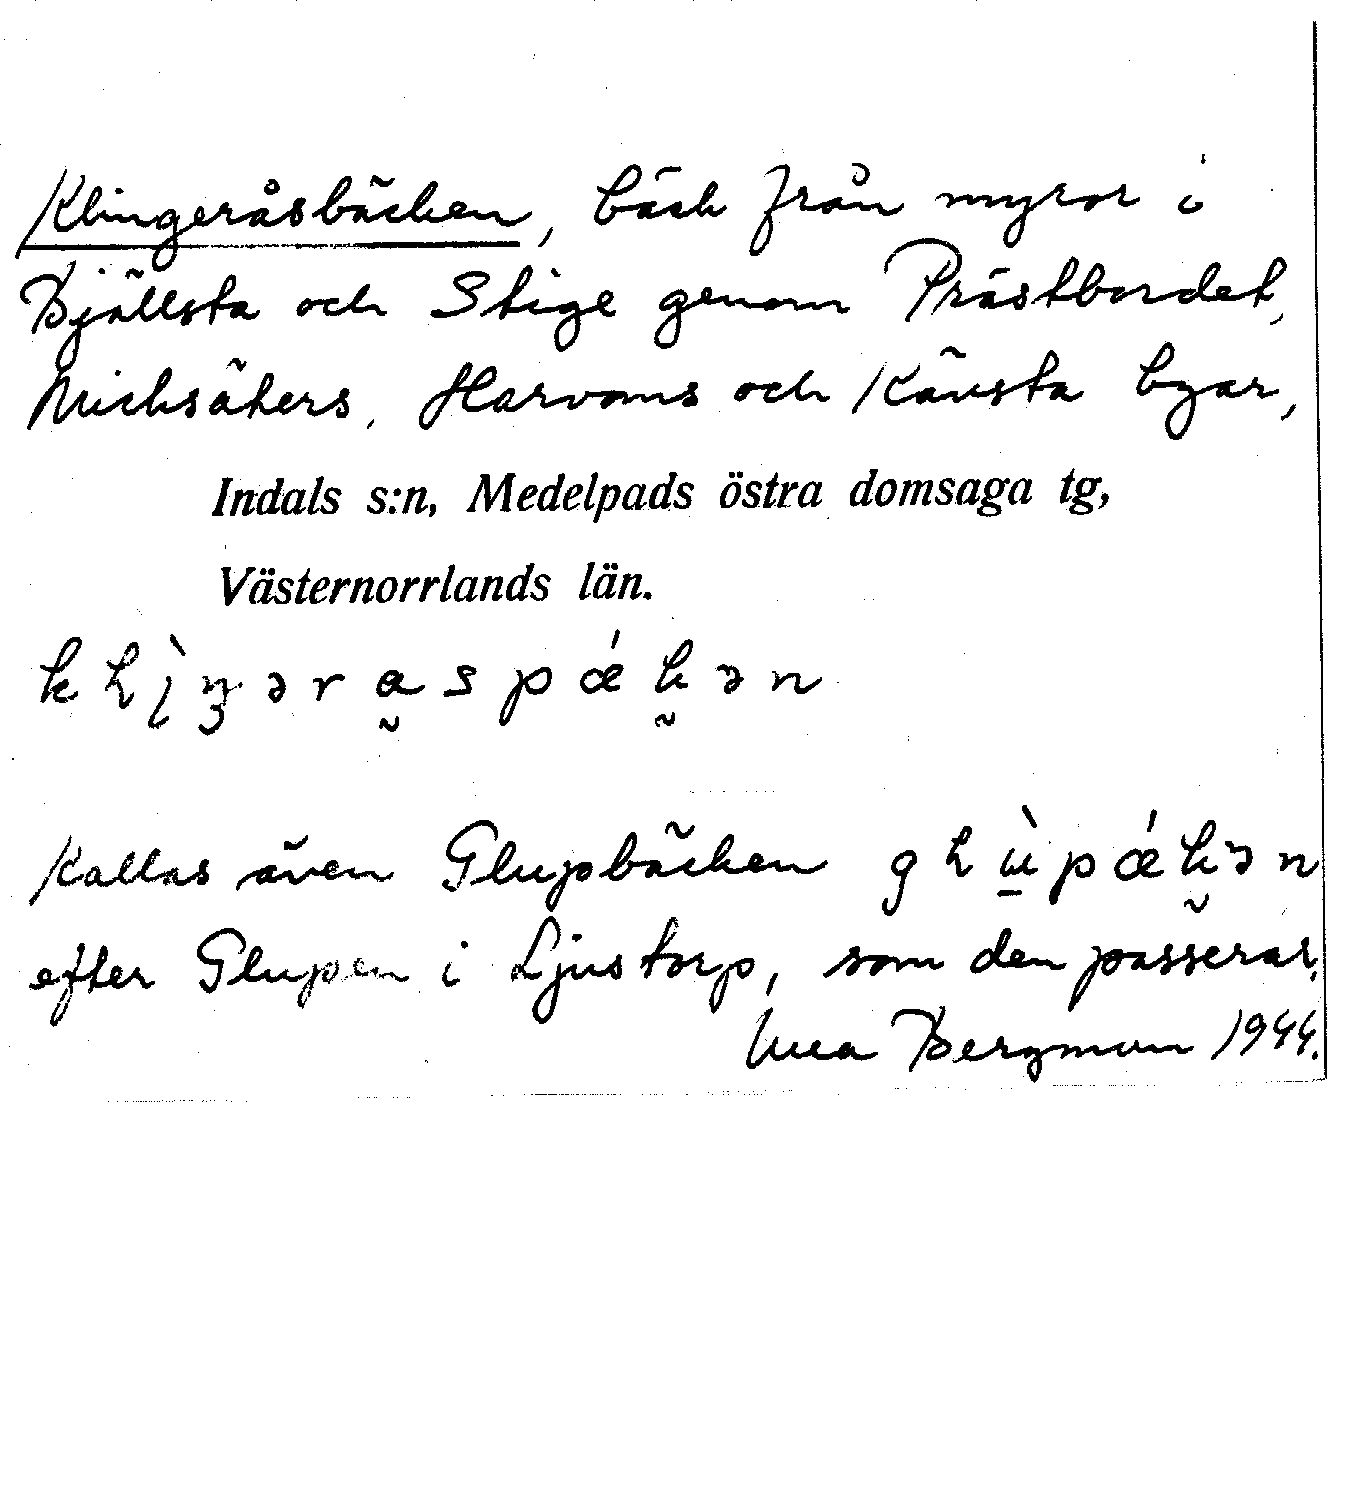 Klingeråsbäcken, bäck från myror i
Bjällsta och Stige genom Prästbordet,
Nicksäkers, Harvoms och Kävsta byar,
Indals s:n, Medelpads östra domsaga tg,
Västernorrlands län.
Kallas även Glupbäcken
efter Glupen i Ljustorp, som den passerar.
Bergman 1944.